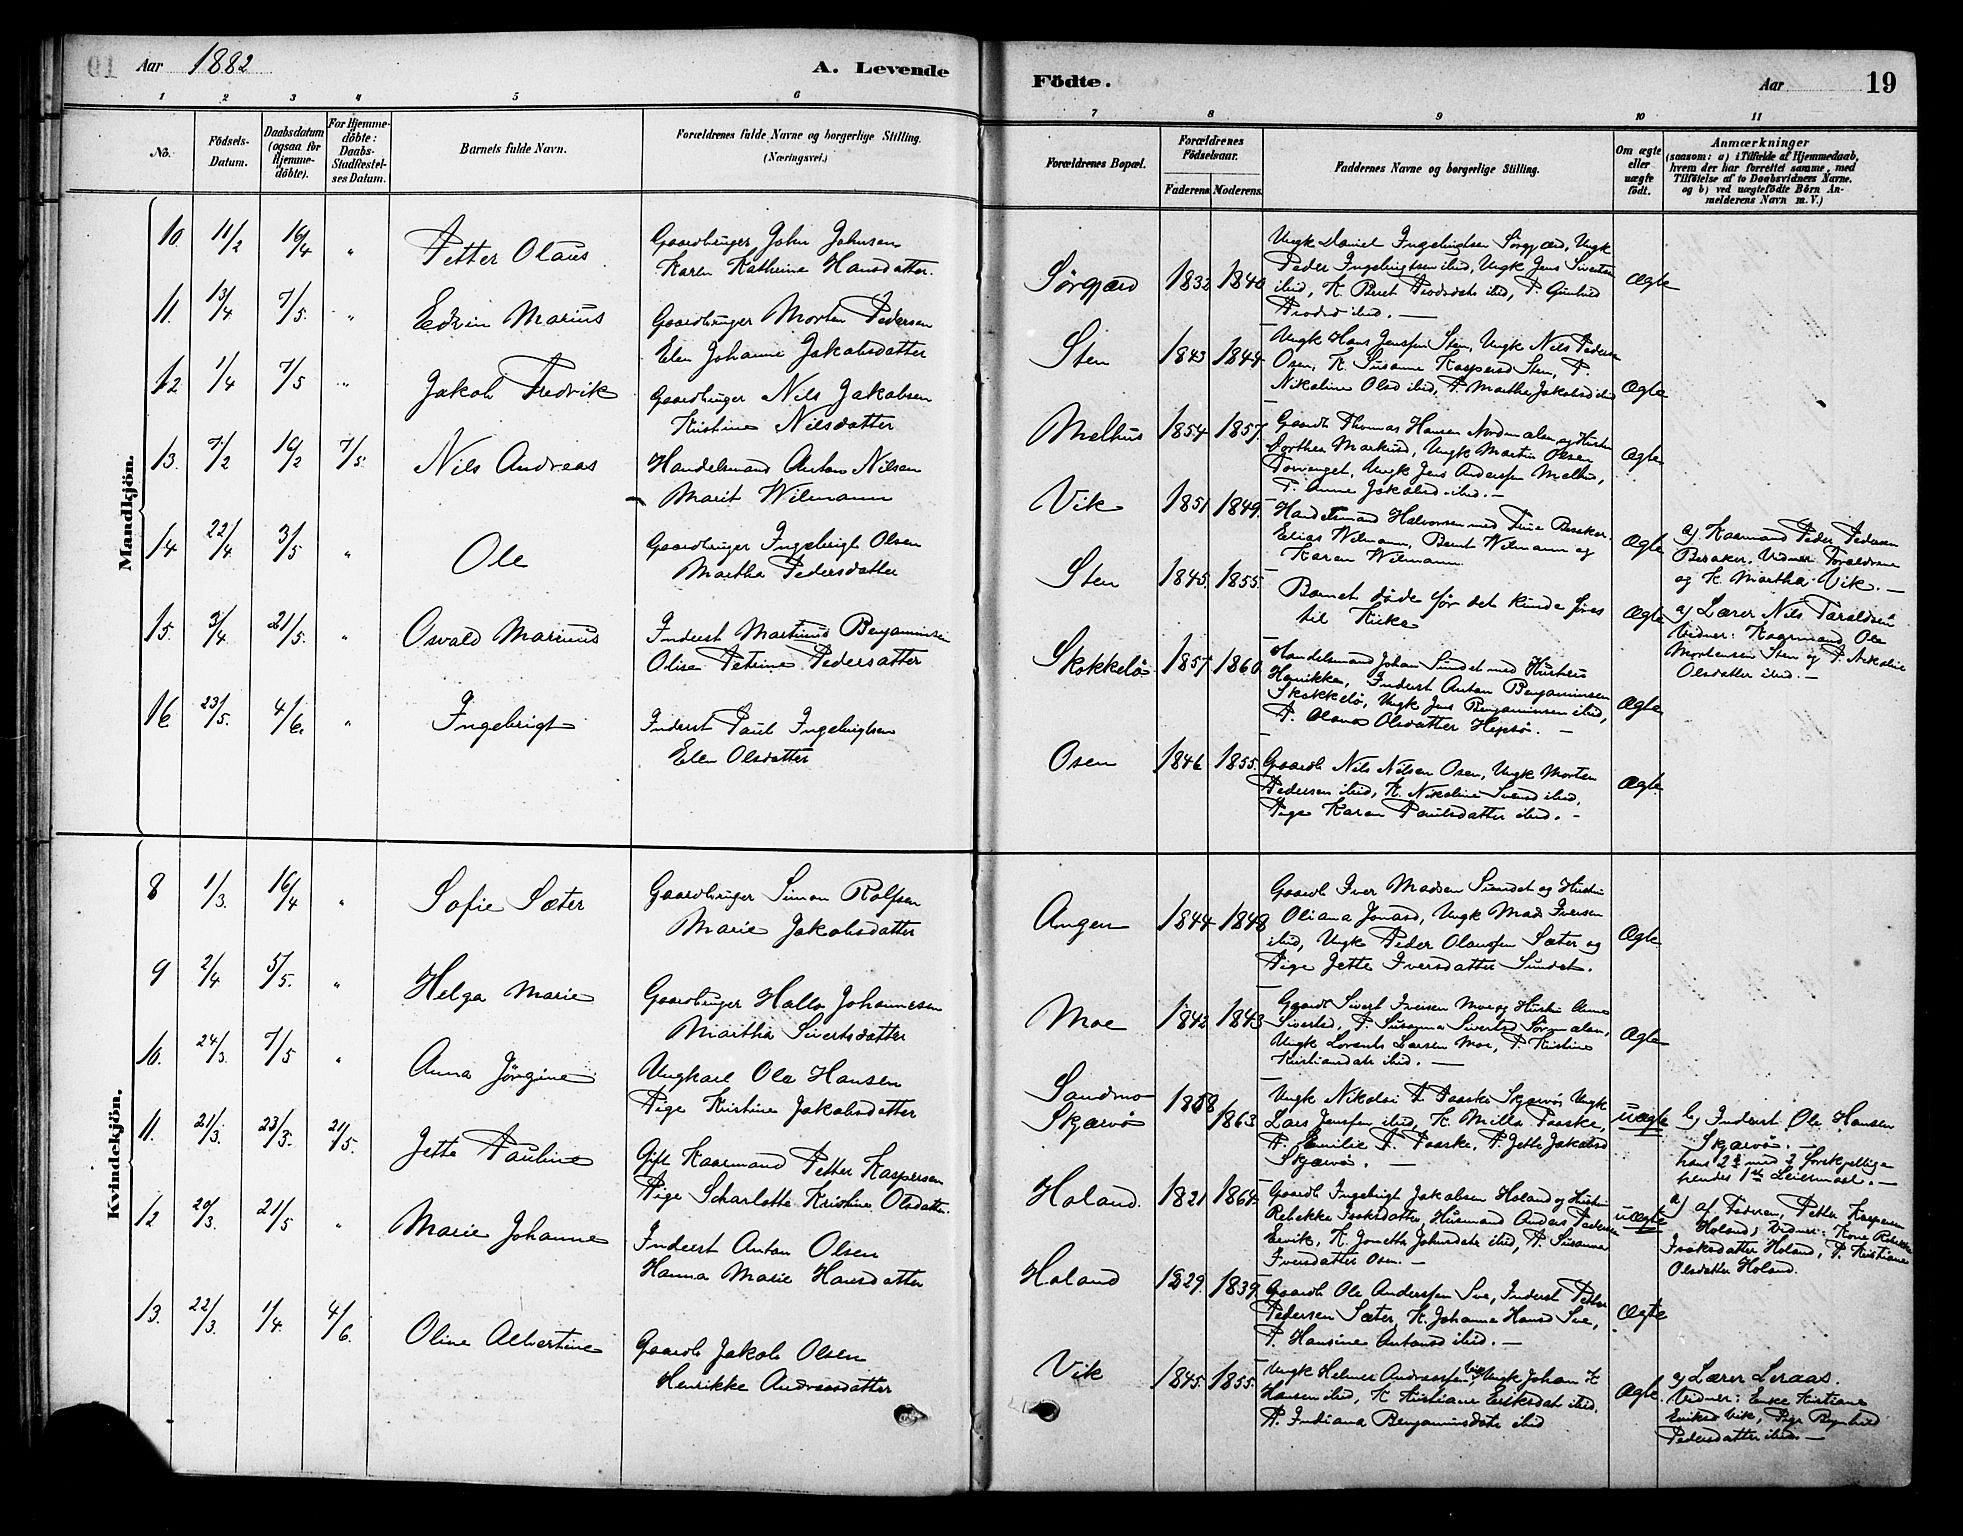 Aar 1882
A. Levende
Födte.
Aar
19
1 2 3 4 5 6 7 8 9 10 11
No.
Födsels-
Datum.
Daabsdatum
(ogsaa for
Hjemme-
döbte).
For Hjemme-
döbte:
Daabs-
Stadfæstel-
ses Datum.
Barnets fulde Navn.
Forældrenes fulde Navne og borgerlige Stilling.
(Næringsvei.)
Forældrenes Bopæl.
Forældrenes
Födselsaar.
Faderens. Moderens.
Faddernes Navne og borgerlige Stilling.
Om ægte
eller
uægte
født.
Anmærkninger
(saasom: a) i Tilfælde af Hjemmedaab,
hvem der har forrettet samme, med
Tilföielse af to Daabsvidners Navne.
og b) ved uægtefödte Börn An-
melderens Navn m. V.)
Mandkjön.
10. 11/2 16/4 " Petter Olaus
Gaardbruger John Johnsen
Karen Kathrine Hansdatter.
Sørgjærd 1832 1840
Ungk Daniel Ingebrigtsen Sørgjærd, Ungk
Peder Ingebrigtsen ibid, Ungk Jens Sivertsen
ibid, K. Beret ibid, P. Gunhild
ibid. —
Ægte
11. 13/4 7/5. " Edvin Marius
Gaardbruger Morten Pedersen
Elen Johanne Jakobsdatter
Sten 1843 1844
Ungk Hans Jenssen Sten, Ungk Nils Pedersen
Osen, K. Susanne Kaspersd Sten, P.
Nikoline Olsd ibid, P. Martha Jakobsd ibid
Ægte
12 1/4 7/5 " Jakob Fredrik
Gaardbruger Nils Jakobsen
Kristine Nilsdatter
Melhus 1854 1857.
Gaardb Thomas Hansen Nordmælen og Hustru
Dorthea Markusd, Ungk Martin Olsen
Ungk Jens Anderssen Melhus,
P. Anne Jakobsd ibid. —
Ægte
13. 7/2 16/2 7/5. Nils Andreas
Handelsmand Anton Nilsen
Marit Wilmann
Vik 1851 1849.
Handelsmand Halvorsen med Frue Besaker.
Elias Wilmann, Bernt Wilmann og
Karen Wilmann.
Ægte
a) Kaarmand Peder Pedersen
Besaker. Vidner Forældrene
og K. Martha Vik. —
14 22/4 3/5 " Ole
Gaardbruger Ingebrigt Olsen
Martha Pedersdatter
Sten 1845. 1855.
Barnet døde før det kunde føres
til Kirke
Ægte
a) Lærer Nils Taraldsen
Vidner: Kaarmand Ole
Mortensen Sten og P. Nikoline
Olsdatter ibid. —
15. 3/4 21/5. " Osvald Marius
Inderst Martinus Benjaminsen
Olise Petrine Pedersdatter
Skokkelø 1857 1860.
Handelsmand Johan Sundet med Hustru
Henrikke, Inderst Anton Benjaminsen
Skokkelø, Ungk Jens Benjaminsen ibid,
P. Olava Olsdatter Hepsø. —
Ægte
16 23/5. 4/6. " Ingebrigt
Inderst Paul Ingebrigtsen
Elen Olsdatter
Osen 1846 1855.
Gaardb Nils Nilsen Osen, Ungk Morten
Pedersen ibid, K. Nikoline Svensd ibid,
Pige Karen Paulsdatter ibid. —
Ægte.
Kvindekjön.
8 1/3. 16/4 " Sofie Sæter
Gaardbruger Simon Rolfsen
Marie Jakobsdatter
Angen 1844 1848
Gaardb Iver Madsen Sundet og Hustru
Oliana Jonasd, Ungk Mads Iversen
ibid, Ungk Peder Olaussen Sæter og
Pige Jette Iversdatter Sundet.
Ægte
9 2/4 5/5. " Helga Marie
Gaardbruger Halla Johannesen
Martha Sivertsdatter
Moe 1842 1843
Gaardb Sivert Iversen Moe og Hustru Anne
Sivertsd, P. Susanna Sivertsd Sørmælen,
Ungk Lorents Larsen Moe, P. Kristine
Kristiansdatr ibid. —
Ægte
10. 24/3. 7/5 " Anna Jørgine
Ungkarl Ole Hansen
Pige Kristine Jakobsdatter
Sandmo
Skjærvø 1858 1863
Ungk Nikolai P. Paaske Skjærvø Ungk
Lars Jenssen ibid, K. Milla Paaske,
P. Emilie P. Paaske, P. Jette Jakobsd
Skjærvø. —
uægte
b) Inderst Ole Hansen
Skjærvø. —
hans 2det med 2 forskjellige
hendes 1ste Leiermaal. —
11. 21/3. 23/3. 21/5. Jette Pauline
Gift Kaarmand Petter Kaspersen
Pige Scharlotte Kristine Olsdatter.
Holand. 1821 1864.
Gaardb Ingebrigt Jakobsen Holand og Hustru
Rebekke Isaksdatter, Husmand Anders Pedersen
Ervik, K. Jonetta Johnsdatr ibid, P. Susanna
Iversdatter Osen. —
uægte
a) af Faderen, Petter Kaspersen
Holand; Vidner: Kone Rebekke
Isaksdatter Holand, P. Kristiane
Olsdatter Holand.
12 20/3. 21/5 " Marie Johanne
Inderst Anton Olsen
Hanna Marie Hansdatter
Holand 1829. 1839.
Gaardb Ole Anderssen Sve, Inderst Petter
Pedersen Sæter, K. Johanna Hansd Sve,
P. Hansine Antonsd ibid. —
Ægte
13. 22/3. 1/4. 4/6. Oline Albertine
Gaardb Jakob Olsen
Henrikke Andreasdatter
Vik 1845. 1855.
Ungk Helmer Andreassen Vik, Ungk Johan K
Hansen ibid, K Kristiane Eriksdat ibid,
P. Indiana Benjaminsdatr ibid
Ægte.
a) Lærer Leraas.
Vidner: Enke Kristiane
Eriksd Vik, Pige Ragnhild
Pedersdatter ibid. —